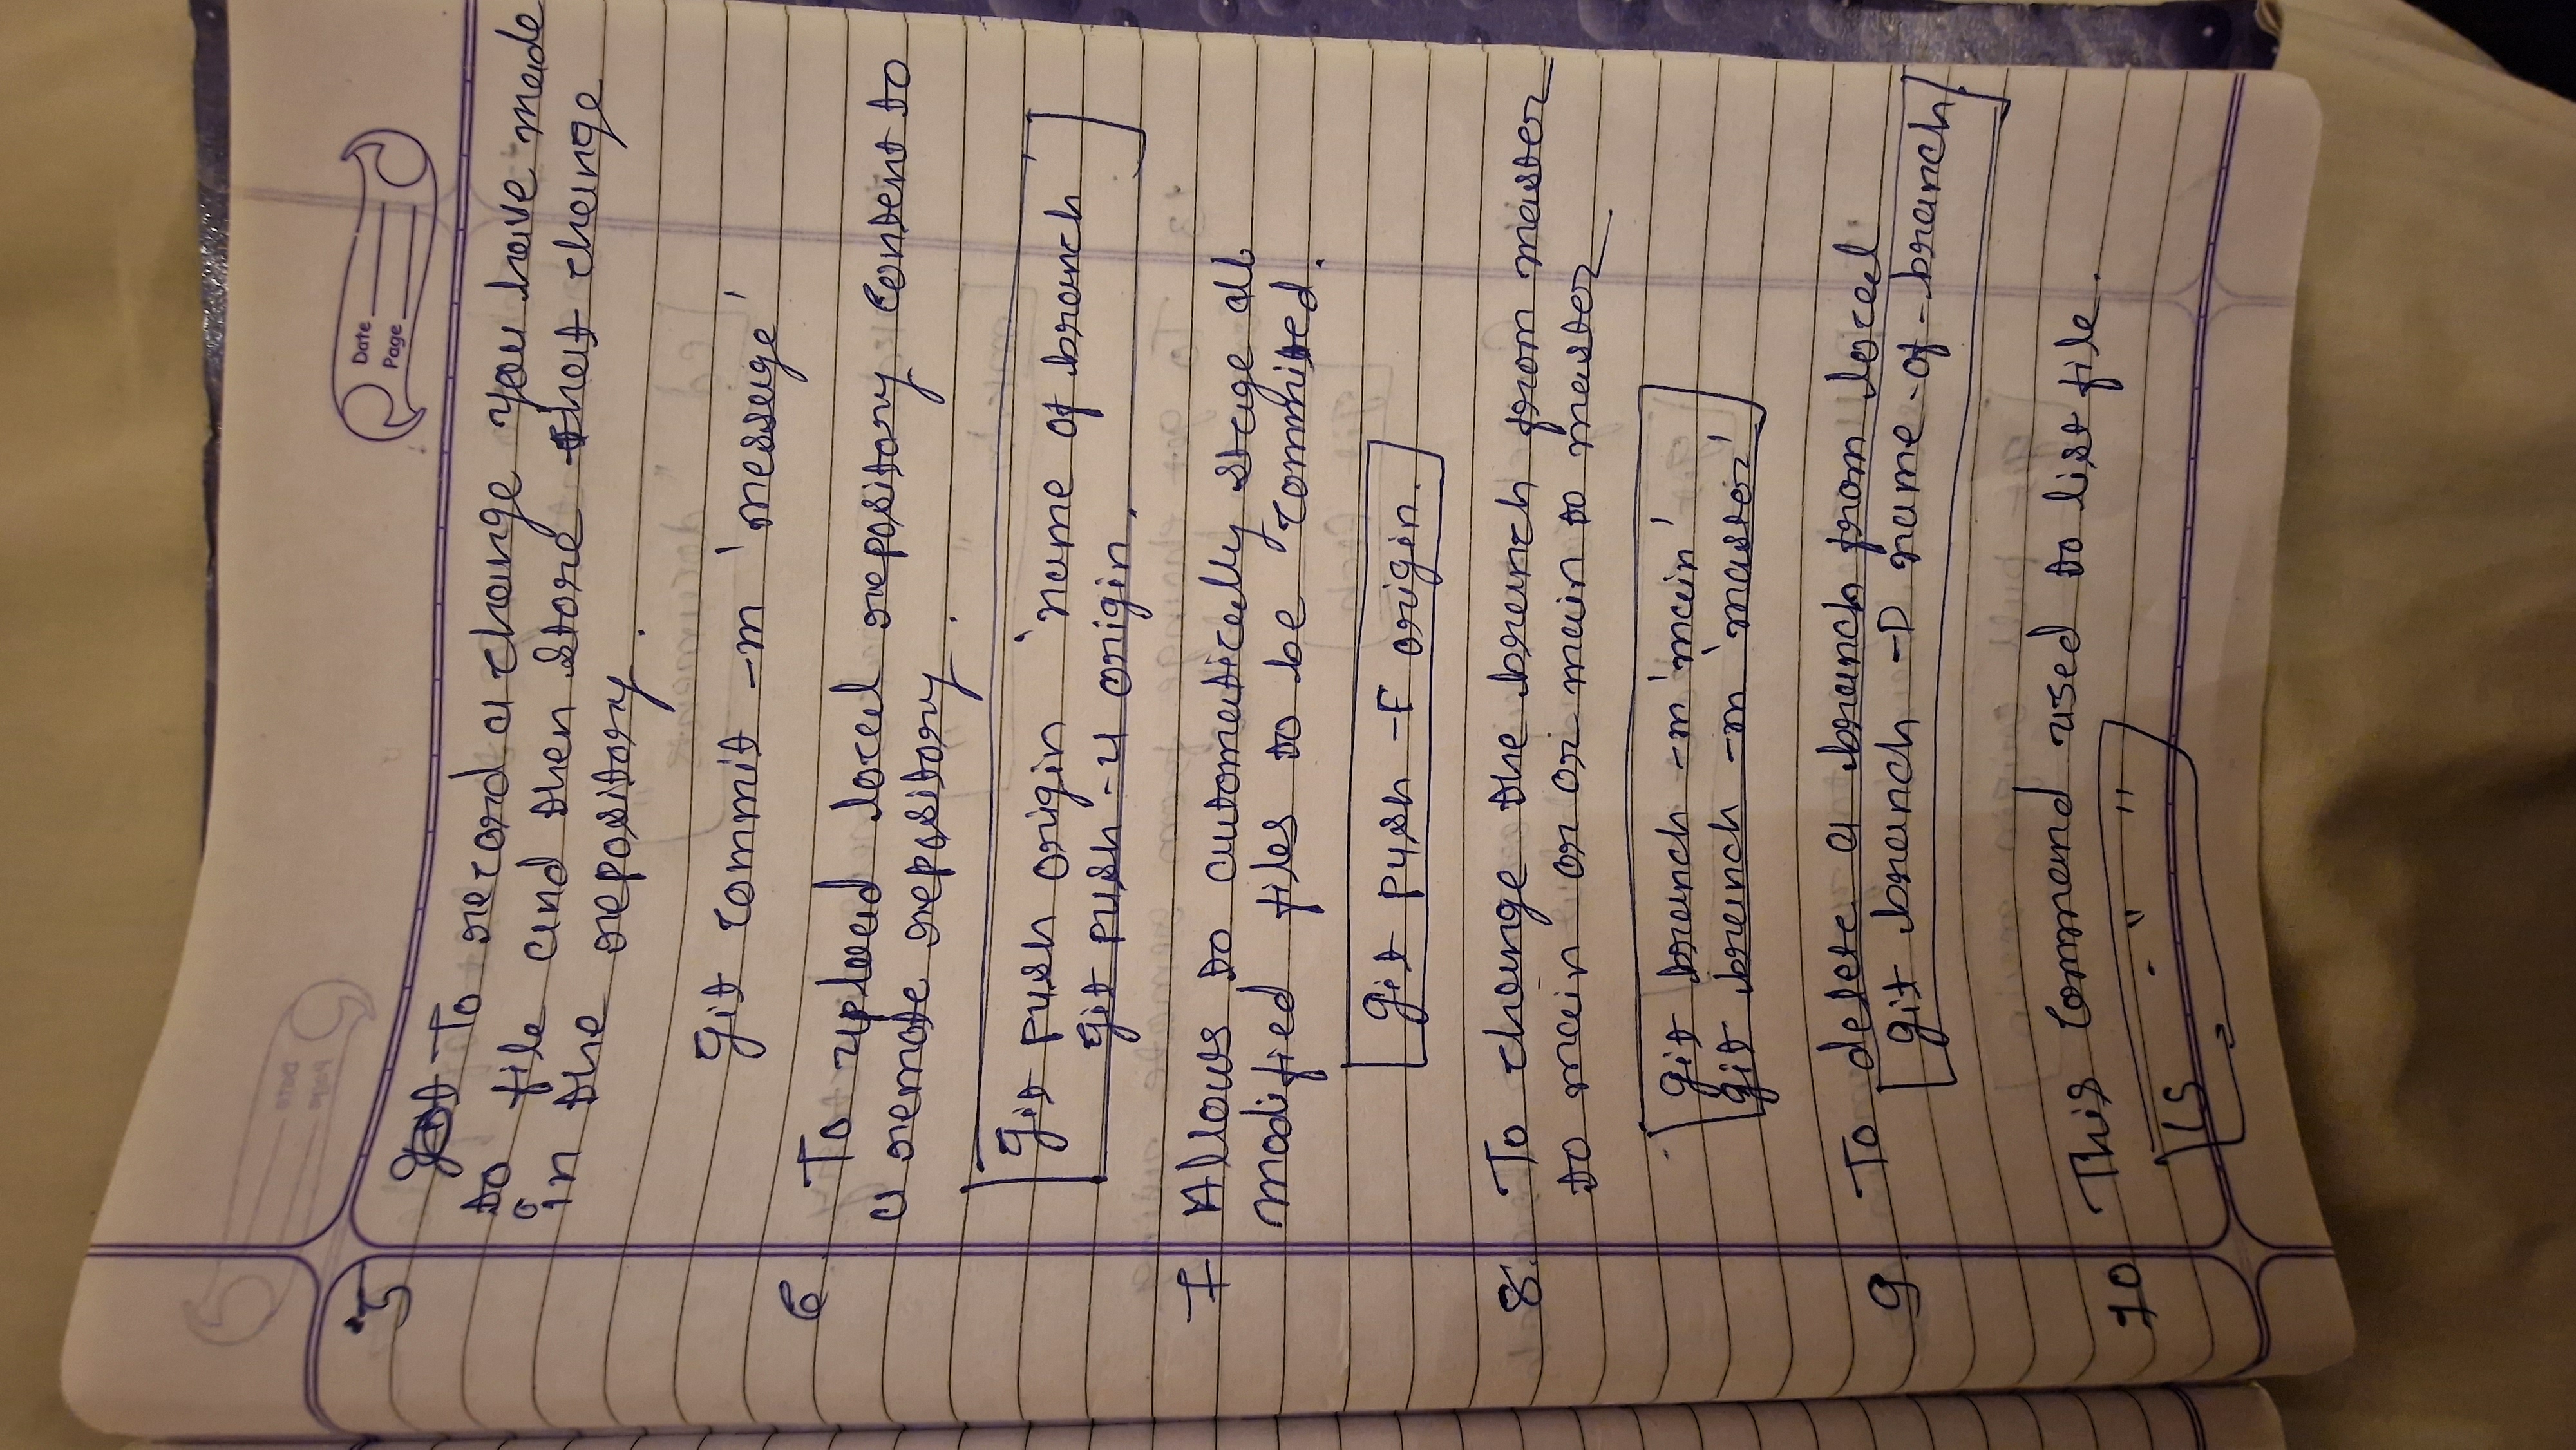 Date
Page
5
To record a change you have made
to file and then store that change
in the repository.
git commit -m 'message'
6 To upload local repository content to
a remote repository.
git push origin 'name of branch'
git push -u origin.
7 Allows to automatically stage all
modified files to be committed.
git push -F origin.
8. To change the branch from master
to main or or main to master
git branch -m 'main'
git branch -m 'master'
9 To delete a branch from local
git branch -D name-of-branch
10 This command used to list file.
ls